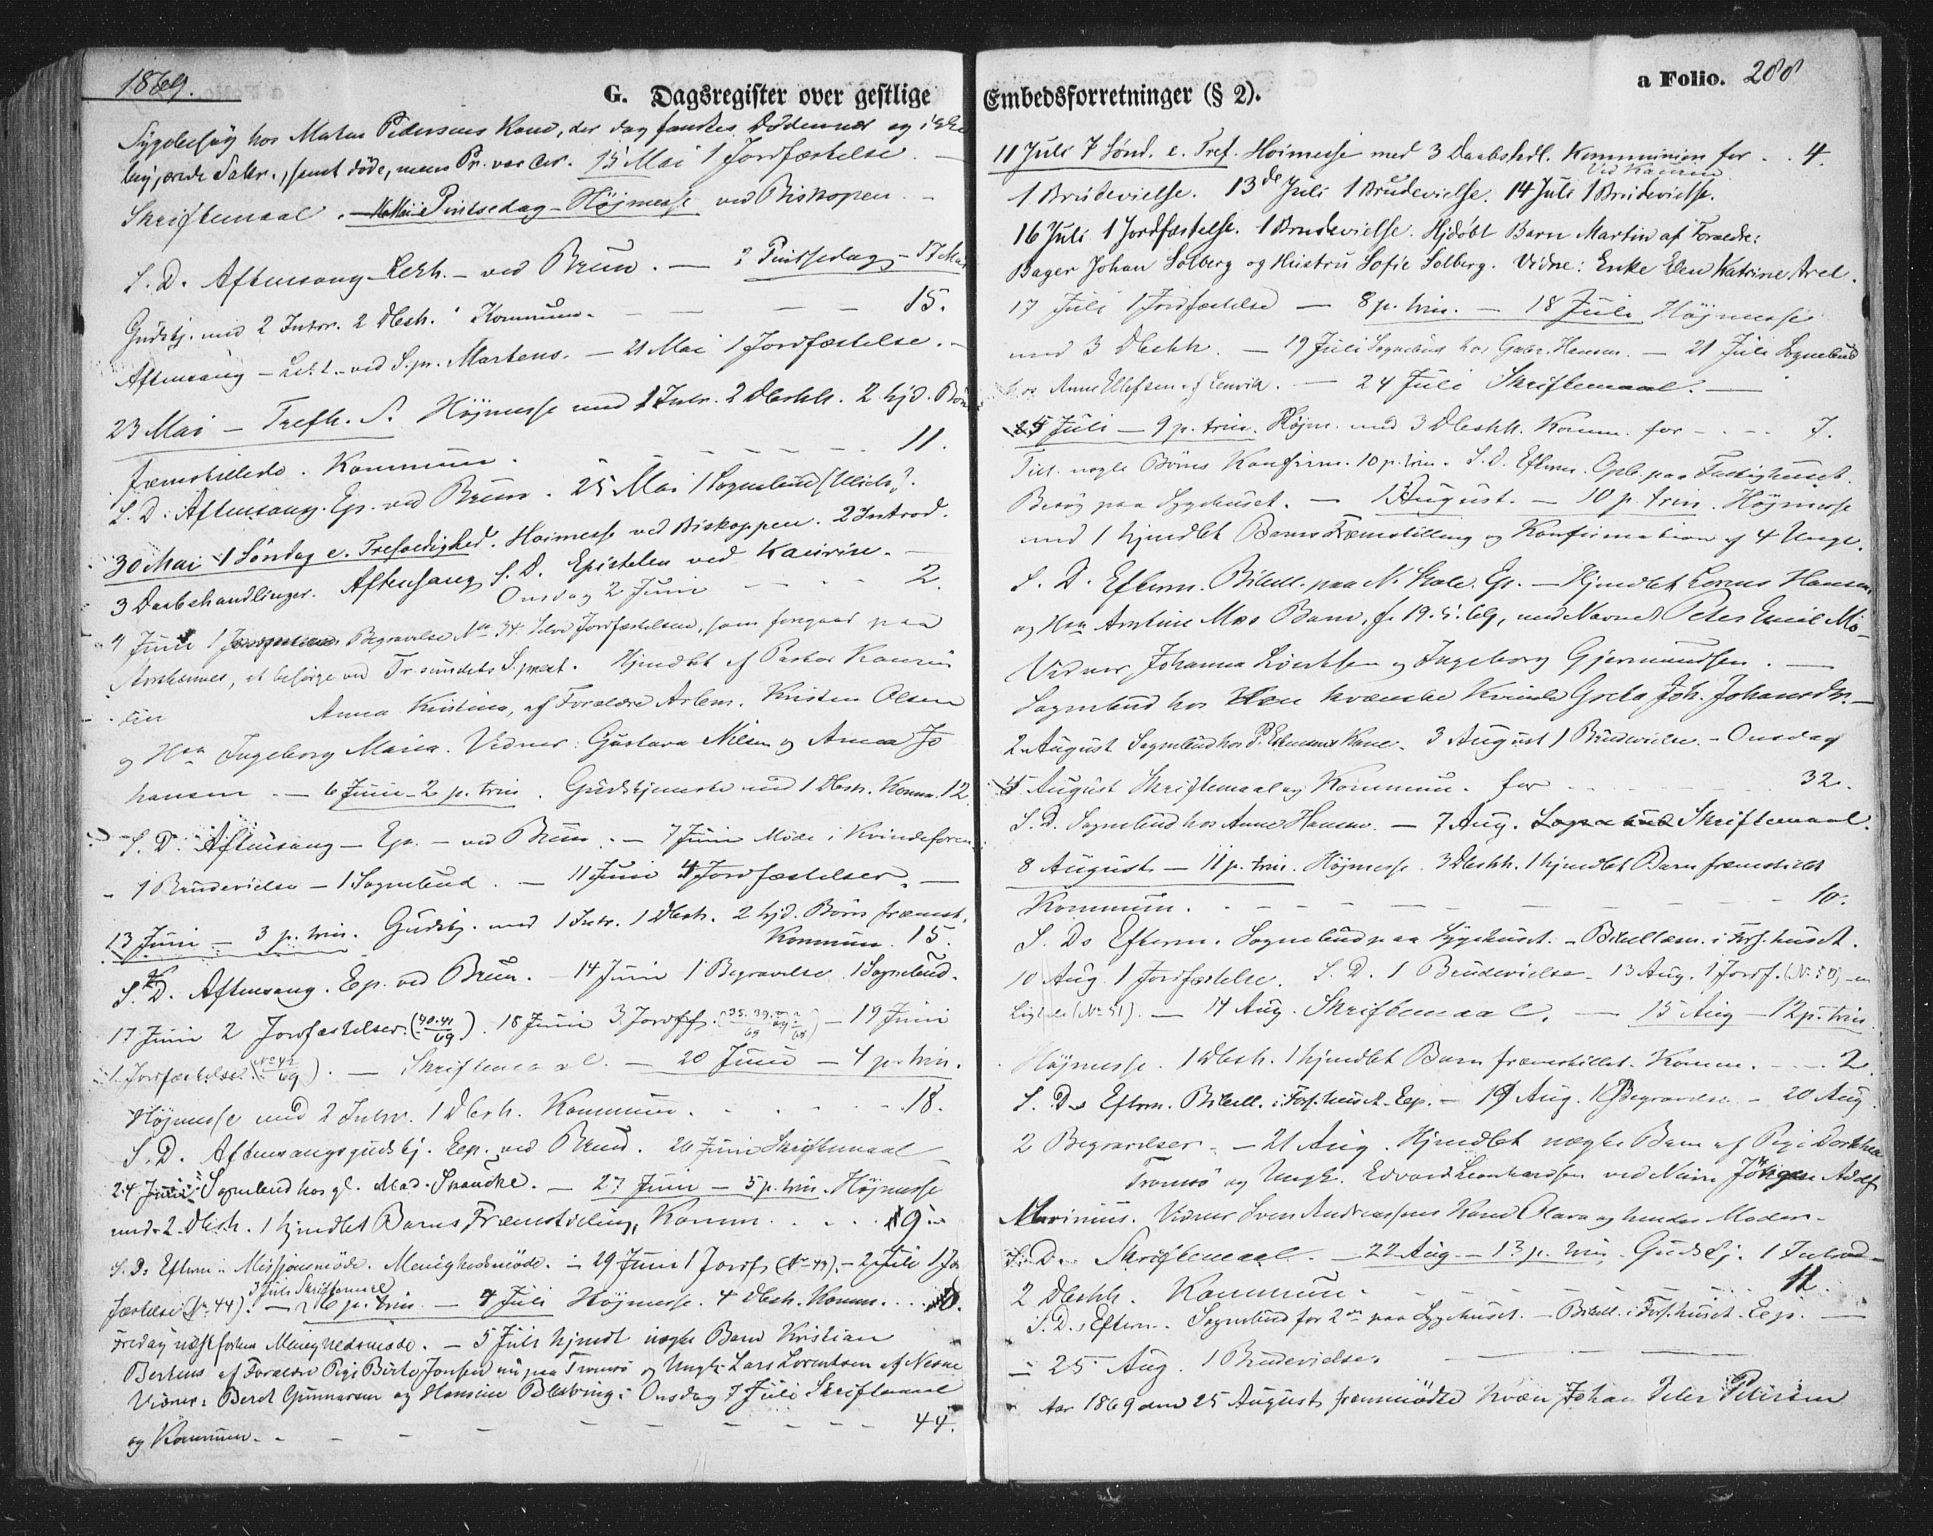 1869.
G. Dagsregister over gestlige
Sygebesøg hos Pedersens Kone, der dog fandtes Døden nær og ikke
Saker., samt døde, mens Pr. var der. 15 Mai 1 Jordfæstelse.
Skriftemaal. Pintsedag Højmesse ved Biskopen.
S. D. Aftensang ved Brun. — 2 Pintsedag — 17 Mai
Gudstj. med 2 Intr. 2 Dbsh. Kommun. 15.
Aftensang — ved S.pr. Martens. — 21 Mai 1 Jordfæstelse.
23 Mai — Trefh. S. Højmesse med 1 Intr. 2 Dbshh. 2 hjd. Børn
fræmstillede. Kommun. 11.
S. D. Aftensang. Ep. ved Brun. 25 Mai 1 Sognebud
30 Mai 1 Søndag e. Trefoldighed. Hoimesse ved Biskoppen. 2 Introd.
3 Daabshandlinger. Aftensang S. D. Epistelen ved Kaurin.
Onsdag 2 Juni 2.
4 Juni 1 Begravelse No 34. Selve Jordfæstelsen, som foregaar paa
at besørge ved Tr.sundets S.prest. Hjmdbt af Pastor Kaurin
Anna Kristina, af Forældre Arbm. Kristen Olsen
og Hua Ingeborg Maria. Vidner: Gustava Nilsen og Anna Jo
hansen. — 6 Juni — 2 p. trin. Gudstjeneste med 1 Dbsh. Komm. 12
S. D. Aftensang — Ep. — ved Brun. — 7 Juni Møde i Kvindeforen
1 Brudevielse — 1 Sognebud. — 11 Juni 4 Jordfæstelser. —
13 Juni — 3 p. trin. Gudstj. med 1 Intr. 1 Dbsh. 2 hjd. Børn fræmst.
Kommun. 15.
S. D. Aftensang. Ep. ved Brun. — 14 Juni 1 Begravelse 1 Sognebud.
17 Juni 2 Jordfæstelser (40.41/69). 18 Juni 3 Jordff. — 19 Juni
1 Jordfæstelse (No 42/69). — Skriftemaal. — 20 Juni — 4 p. trin.
Højmesse med 2 Intr. 1 Dbsh. Kommun. 18.
S. D. Aftensangsgudstj. Eep. ved Brun. Juni Skriftemaal
24 Juni Sognebud hos gl. Mad. Svandke. — 27 Juni — 5 p. trin. Højmesse
med 2 Dbsh. 1 hjmdbt Barns Fræmstilling, Komm. 9.
S. D. Efterm. Missjonsmøde. Menighedsmøde. — 29 Juni 1 Jordf (No 43). — 2 Juli 1 Jor
3 Juli Skriftemaal
fæstelse (Nr. 44). — 6 p. trin. — 4 Juli Højmesse. 4 Dbsh. Komm.
Fredag næst forhen Menighedsmøde. — 5 Juli hjmdt uegte Barn Kristian
Berteus af Forældre Pige Birte Jonsen nu paa Tromsø og Ungk. Lars Lorentsen af Nesne
Vidner: Berdt Gunnarsen og Hansine — Onsdag 7 Juli Skriftemaal
og Kommun. 44.
Embedsforretninger (§ 2).
a Folio. 288
11 Juli 7 Sønd. e. Tref. Hoimesse med 3 Daabshdl. Kommunion for 4.
ved Kaurin
1 Brudevielse. 13de Juli 1 Brudevielse. 14 Juli 1 Brudevielse.
16 Juli 1 Jordfæstelse. 1 Brudevielse. Hjdøbt Barn Martin af Forældre:
Bager Johan Solberg og Hustru Sofie Solberg. Vidne: Enke Elen Katrine Arel.
17 Juli 1 Jordfæstelse — 8 p. trin. — 18 Juli Højmesse
med 3 Dbshh. — 19 Juli Sognebud hos Hansen. — 21 Juli Sognebud
hos Anne Ellefsen af Lenvik. — 24 Juli Skriftemaal. —
25 Juli — 9 p. trin. Højm. med 3 Dbshh. Komm. for 7.
Till. nogle Børns Konfirm. 10 p. trin. S. D. Efterm. Opb. paa Fattighuset.
Besøg paa Sygehuset. — 1 August. — 10 p. trin. Højmesse
med 1 hjmdbt Barns Fræmstilling og Konfirmation af 4 Unge.
S. D. Efterm. Bibell. paa N. Skole. Ep. — Hjmdbt Lorens Hansen
og Hua Barn, f. 19.5.69, med Navnet Peter Emil
Vidner Johanna og Ingeborg Gjermundsen. —
Sognebud hos kvænske Kvinde Greta Joh. Johansdtr. —
2 August Sognebud hos Kone. 3 August 1 Brudevielse. — Onsdag
August Skriftemaal og Kommun. for 32.
S. D. Sognebud hos Anne Hansen. — 7 Aug. Skriftemaal.
8 August — 11 p. trin. Højmesse. 3 Dbshh. 1 hjmdbt Barn fræmstillet
Kommun. 10.
S. D. Efterm. Sognebud paa Sygehuset. — Bibellæsn. i Fors.huset.
10 Aug. 1 Jordfæstelse. S. D. 1 Brudevielse. 13 Aug. 1 Jordf. (Nr. 50) — en
(Nr 51). — 14 Aug. Skriftemaal. — 15 Aug — 12 p. trin.
Højmesse. 1 Dbsh. 1 hjmdbt Barn fræmstillet. Komm. 2.
S. D. Efterm. Bibell. i Fors.huset. Eep. — 19 Aug. 1 Begravelse. — 20 Aug
2 Begravelser. — 21 Aug. Hjmdbt uægte Barn af Pige Dorthea
Tromsø og Ungk. Edvard Leonhardsen ved Navn Jørgen Adolf
Marinius. Vidner Sven Andreassens Kone Olava og hendes Moder.
S. D. Skriftemaal. — 22 Aug. — 13 p. trin. Gudstj. 1 Introd.
2 Dbshh. Kommun. 11.
S. D. Efterm. Sognebud for 2 paa Sygehuset. — Bibell. i Fors.huset. Eep. —
— 25 Aug. 1 Brudevielse.
Aar 1869 den 25 August fremmødte Kvæn Johan Peter Petersen